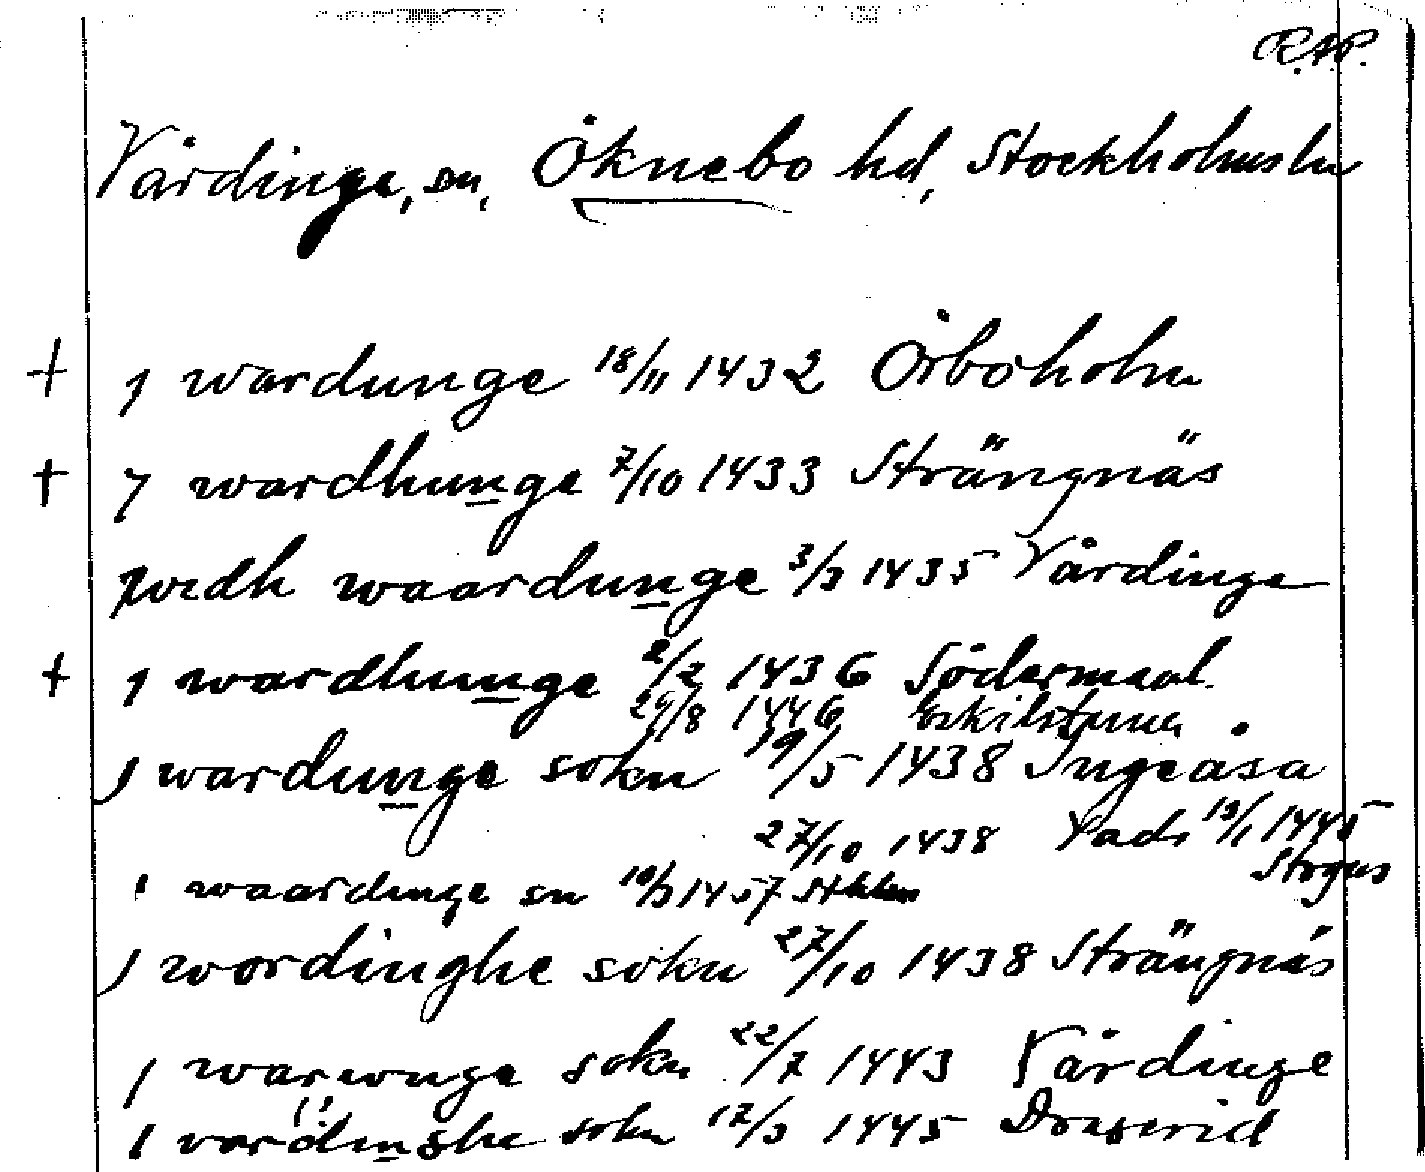 R.A.P.
Vårdinge, sn, Öknebo hd, Stockholms ln
+ j wardunge 18/11 1432 Örboholm
+ j wardhunge 7/10 1433 Strängnäs
widh waardunge 3/3 1435 Vårdinge
+ j wardhunge 2/2 1436 Södermanl.
29/8 1446 Eskilstuna
j wardunge sokn 19/5 1438 Ingeåsa
27/10 1438 Vads 13/1 1445
Strgns
i waardinge sn 10/3 1457 Sthlm
j wordinghe sokn 27/10 1438 Strängnäs
j warwnge sokn 22/7 1443 Vårdinge
(!)
i vardinghe sokn 12/3 1445